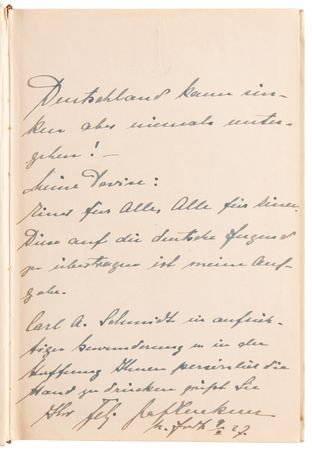 Deutschland kann sin-
ken aber niemals unter-
gehen! —
Meine Devise:
Eines für Alle, Alle für Einen
Diese auf die deutsche Jugend
zu übertragen ist meine Auf-
gabe.
Carl A. Schmidt in aufrich-
tiger Bewunderung u in der
Hoffnung Ihnen persönlich die
Hand zu drücken grüßt Sie
Ihr
27.